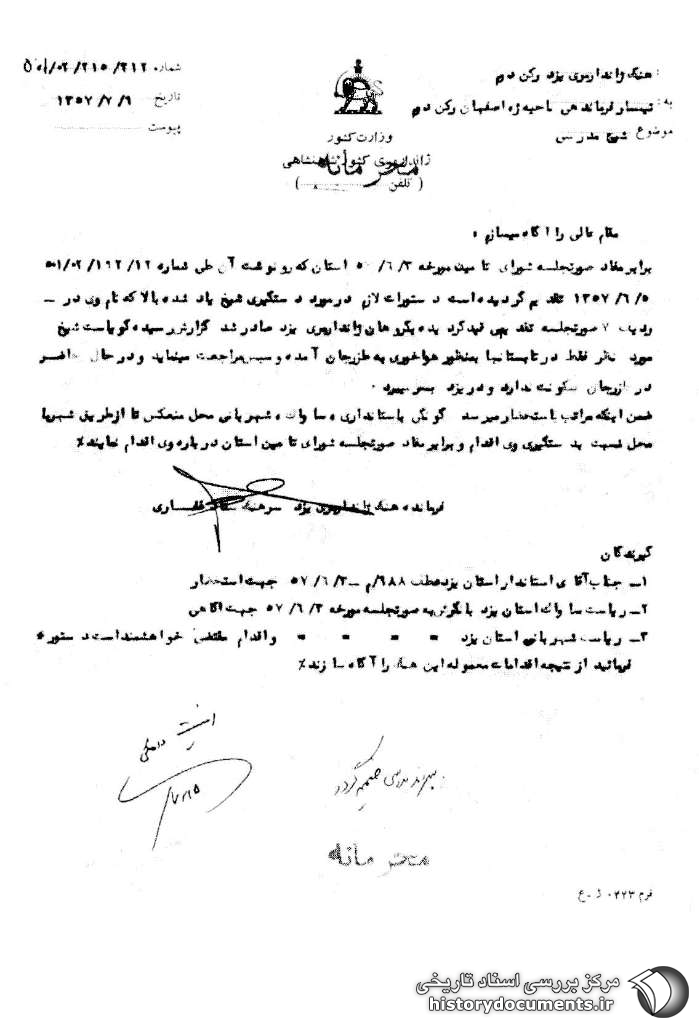 شماره ۵۰۱/۰۲/۲۱۵/۳۱۲
تاریخ ۱۳۵۷/۷/۹
پیوست
وزارت کشور
ژاندارمری کشور شاهنشاهی
محرمانه
( تلفن )
هنگ ژاندارمری یزد رکن دوم
به: تیمسار فرماندهی ناحیه ژه اصفهان رکن دوم
موضوع شیخ مدرسی
مقام عالی را آگاه میسازم :
برابر مفاد صورتجلسه شورای تامین مورخه ۵۷/۶/۳ استان که رونوشت آن طی شماره ۵۰۱/۰۲/۱۹۲/۱۲
۱۳۵۷/۶/۵ تقدیم گردیده است دستورات لازم در مورد دستگیری شیخ یاد شده بالا که نام وی در -
ردیف ۷ صورتجلسه تقدیمی قید گردیده بگروهان ژاندارمری یزد صادر شد گزارش رسیده گویاست شیخ
مورد نظر فقط در تابستانها بمنظور هواخوری به طزرجان آمده و سپس مراجعت مینماید و در حال حاضر
در طزرجان سکونت ندارد و در یزد بسر میبرد .
ضمن اینکه مراتب باستحضار میرسد گونگی باستانداری و ساواک و شهربانی محل منعکس تا از طریق شهربا
محل نسبت بدستگیری وی اقدام و برابر مفاد صورتجلسه شورای تامین استان درباره وی اقدام نمایند٪
فرمانده هنگ ژاندارمری یزد سرهنگ
گیرندگان
۱- جناب آقای استاندار استان یزد عطف ۶۸۸/م - ۵۷/۶/۳ جهت استحضار
۲- ریاست ساواک استان یزد بانگرش به صورتجلسه مورخه ۵۷/۶/۳ جهت آگاهی
۳- ریاست شهربانی استان یزد " " " " و اقدام مقتضی خواهشمند است دستور
فرمائید از نتیجه اقدامات معموله این هنگ را آگاه سازند٪
ضمیمه گردد
محرمانه
فرم ۰۴۲۳ ژ-ع
مرکز بررسی اسناد تاریخی
historydocuments.ir